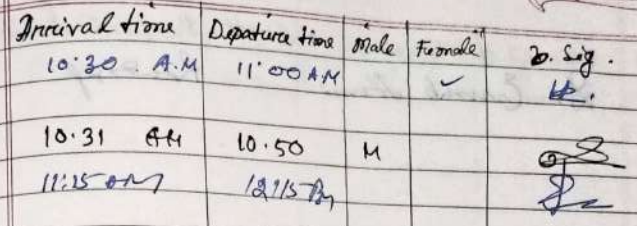 Arrival time Depature time Male Female D. Sig.
10:30 A.M 11:00 AM ✓
10.31 AM 10.50 M
11:15 AM 12:15 Pm